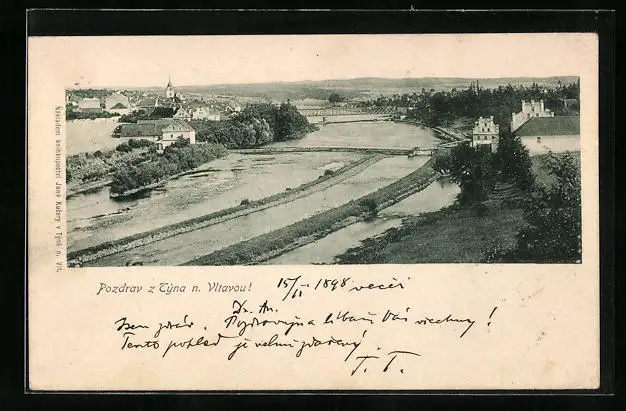 Nákladem knihkupectví Jana Kučery v Týně n. Vlt.
Pozdrav z Týna n. Vltavou!
15/II 1898 večer
Dr. An.
Jsem zdráv. Pozdravuju a líbám Vás všechny!
Tento pohled je velmi zdařený!
T. T.